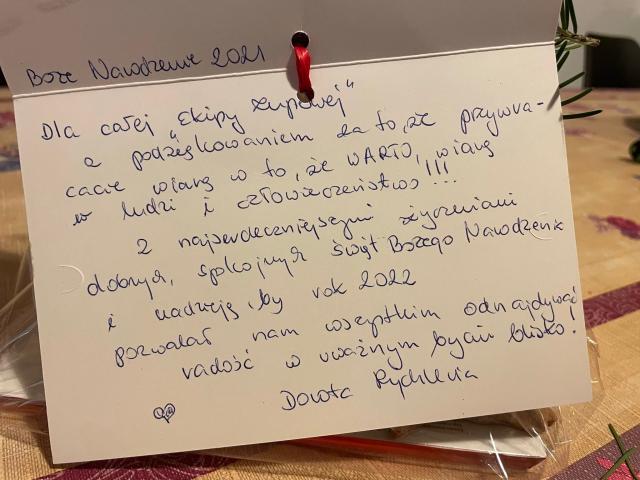 Boże Narodzenie 2021
Dla całej "Ekipy Zupowej"
z podziękowaniem za to, że przywra-
cacie wiarę w to, że WARTO, wiarę
w ludzi i człowieczeństwo!!!
Z najserdeczniejszymi życzeniami
dobrych, spokojnych świąt Bożego Narodzenia
i nadzieją, by rok 2022
pozwalał nam wszystkim odnajdywać
radość w uważnym byciu blisko!
Dorota